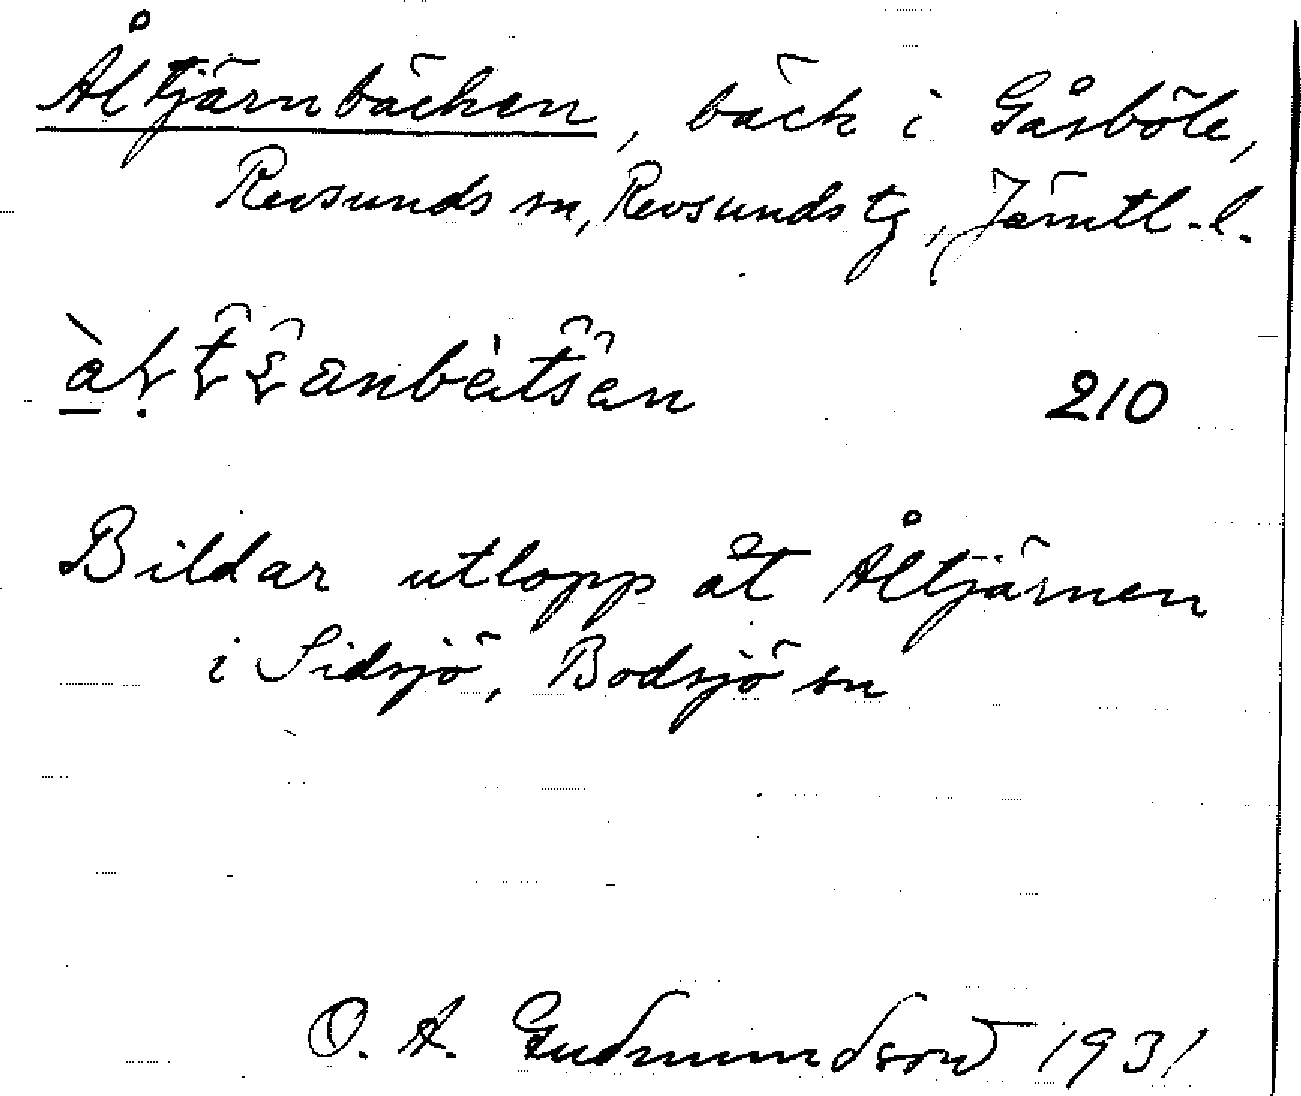 Åltjärnbäcken, bäck i Gåsböle,
Revsunds sn, Revsunds tg, Jämtl. l.
210
Bildar utlopp åt Åltjärnen
i Sidsjö, Bodsjö sn
O. A. Gudmundsson 1931